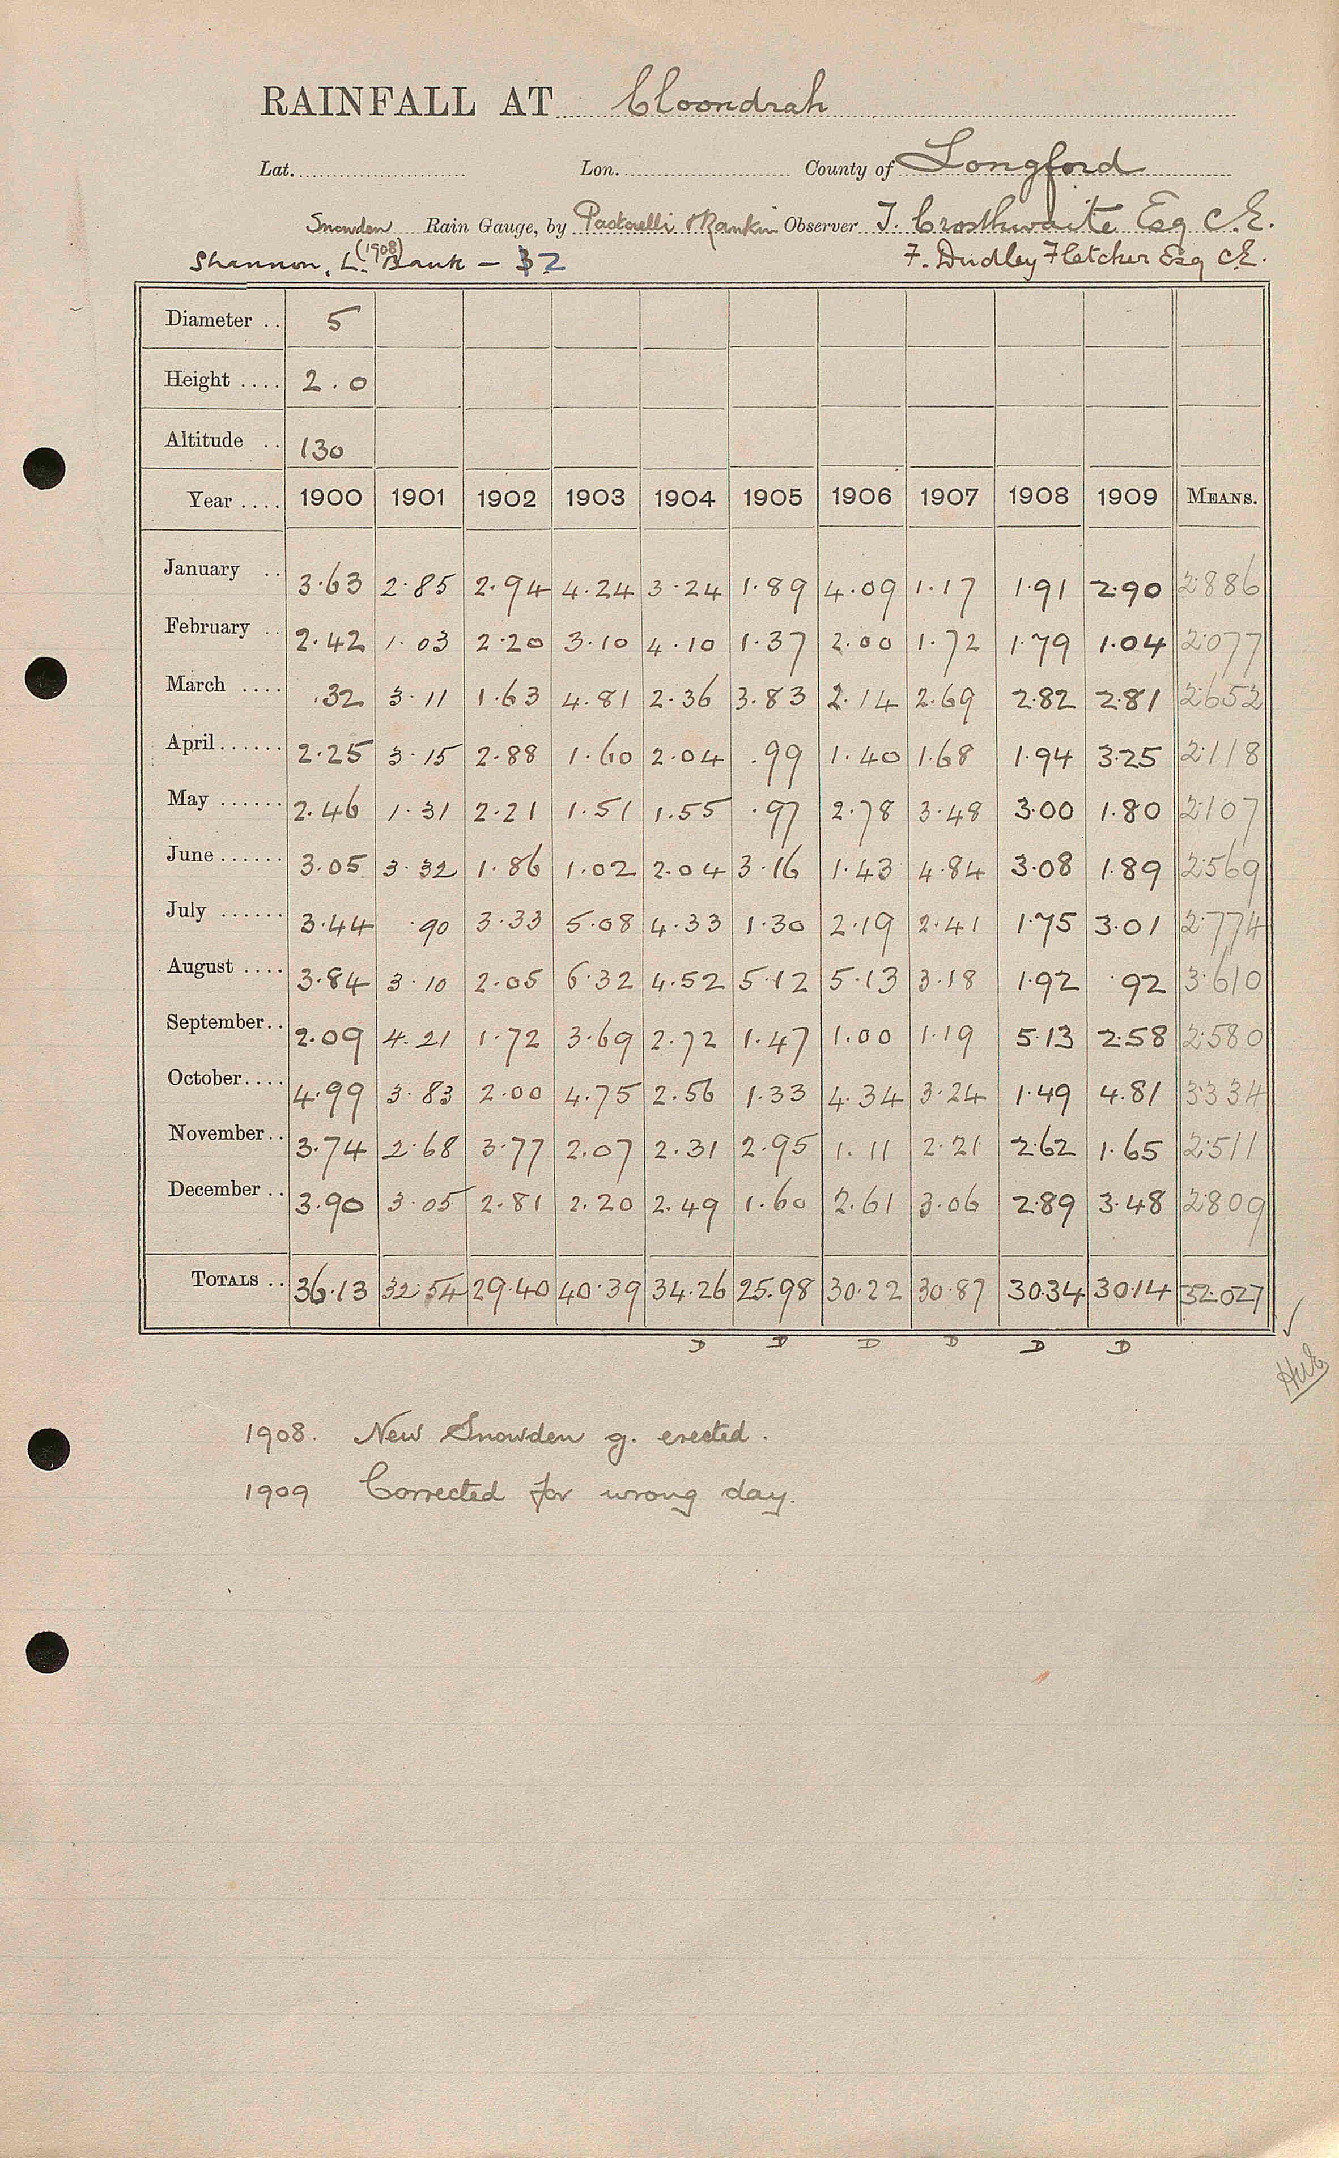 RAINFALL AT Cloondrah
Lat. Lon. County of Longford
Snowden Rain Gauge, by Pastorelli & Rankin Observer J. Crosthwaite Esq C.E.
(1908)
Shannon, L. Bank — 32 F. Dudley Fletcher Esq C.E.
Diameter .. 5
Height .... 2.0
Altitude .. 130
Year .... 1900 1901 1902 1903 1904 1905 1906 1907 1908 1909 MEANS.
January .. 3.63 2.85 2.94 4.24 3.24 1.89 4.09 1.17 1.91 2.90 2.886
February .. 2.42 1.03 2.20 3.10 4.10 1.37 2.00 1.72 1.79 1.04 2.077
March .... .32 3.11 1.63 4.81 2.36 3.83 2.14 2.69 2.82 2.81 2.652
April ...... 2.25 3.15 2.88 1.60 2.04 .99 1.40 1.68 1.94 3.25 2.118
May ...... 2.46 1.31 2.21 1.51 1.55 .97 2.78 3.48 3.00 1.80 2.107
June ...... 3.05 3.32 1.86 1.02 2.04 3.16 1.43 4.84 3.08 1.89 2.569
July ...... 3.44 .90 3.33 5.08 4.33 1.30 2.19 2.41 1.75 3.01 2.774
August .... 3.84 3.10 2.05 6.32 4.52 5.12 5.13 3.18 1.92 .92 3.610
September .. 2.09 4.21 1.72 3.69 2.72 1.47 1.00 1.19 5.13 2.58 2.580
October .... 4.99 3.83 2.00 4.75 2.56 1.33 4.34 3.24 1.49 4.81 3.334
November .. 3.74 2.68 3.77 2.07 2.31 2.95 1.11 2.21 2.62 1.65 2.511
December .. 3.90 3.05 2.81 2.20 2.49 1.60 2.61 3.06 2.89 3.48 2.809
TOTALS .. 36.13 32.54 29.40 40.39 34.26 25.98 30.22 30.87 30.34 30.14 32.027
D D D D D D
1908. New Snowden g. erected.
1909 Corrected for wrong day.